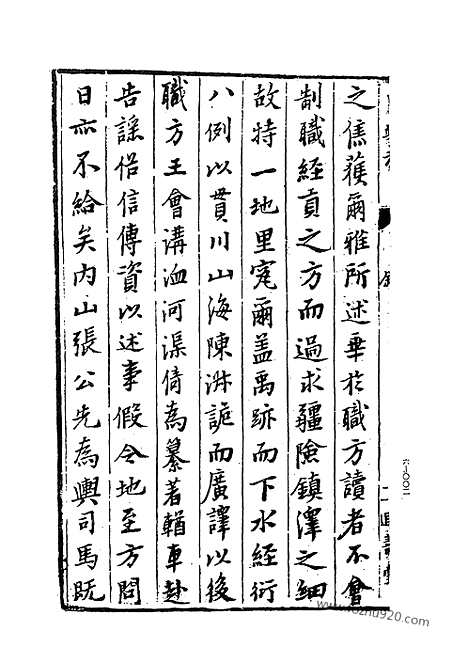 之焦蕆爾雅所述華於職方讀者不會
制職經貢之方而過求疆險鎮澤之細
故特一地里寃爾盖禹跡而下水經衍
八例以貫川山海陳洪詭而廣譯以後
職方王會溝洫河渠倚為纂著輶車赴
告謡俗信傳資以述事假令地至方問
日亦不給矣内山張公先為輿司馬既
六—〇〇二
www.fozhu920.com